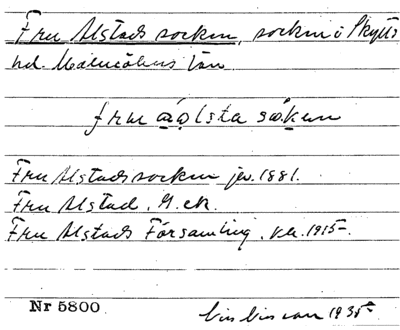 Fru Alstads socken, socken i Skytts
hd. Malmöhus län
fru aolsta soken
Fru Alstads socken jv. 1881.
Fru Alstad. G.ek.
Fru Alstads Församling. 1915
Nr 5800 1935